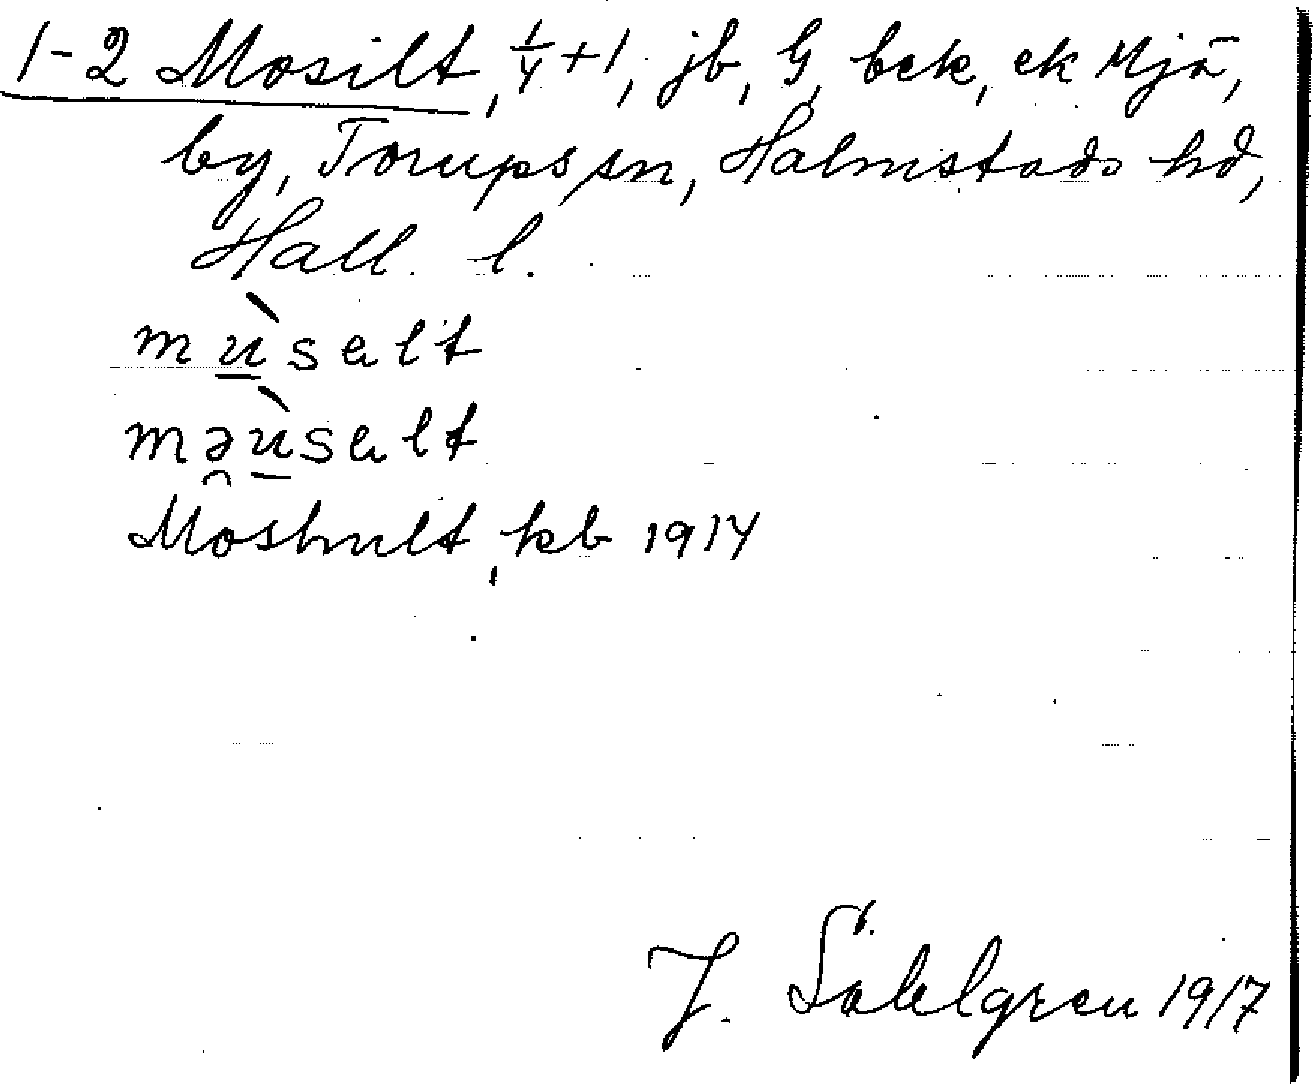 1-2 Mosilt, 1/4+1, jb, G, bek, ek Mjö,
by, Torups sn, Halmstads hd,
Hall. l.
mùsalt
məùsalt
Moshult, kb 1914
J. Sahlgren 1917